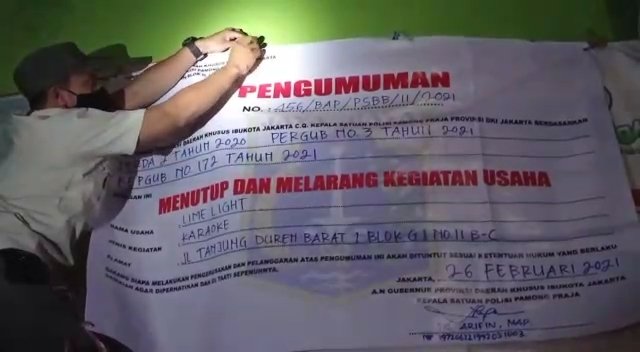 PENGUMUMAN
NO. : 256/BAP/PSBB/II/2021
DAERAH KHUSUS IBUKOTA JAKARTA C.Q. KEPALA SATUAN POLISI PAMONG PRAJA PROVINSI DKI JAKARTA BERDASARKAN
2 TAHUN 2020 PERGUB NO 3 TAHUN 2021
PERGUB NO 172 TAHUN 2021
INI
MENUTUP DAN MELARANG KEGIATAN USAHA
NAMA USAHA : LIME LIGHT
JENIS KEGIATAN : KARAOKE
ALAMAT : JL TANJUNG DUREN BARAT 1 BLOK G1 NO 11 B-C
BARANG SIAPA MELAKUKAN PENGRUSAKAN DAN PELANGGARAN ATAS PENGUMUMAN INI AKAN DITUNTUT SESUAI KETENTUAN HUKUM YANG BERLAKU
AGAR DIPERHATIKAN DAN DI TAATI SEPENUHNYA.
JAKARTA, 26 FEBRUARI 2021
A.N GUBERNUR PROVINSI DAERAH KHUSUS IBUKOTA JAKARTA
KEPALA SATUAN POLISI PAMONG PRAJA
ARIFIN, MAP